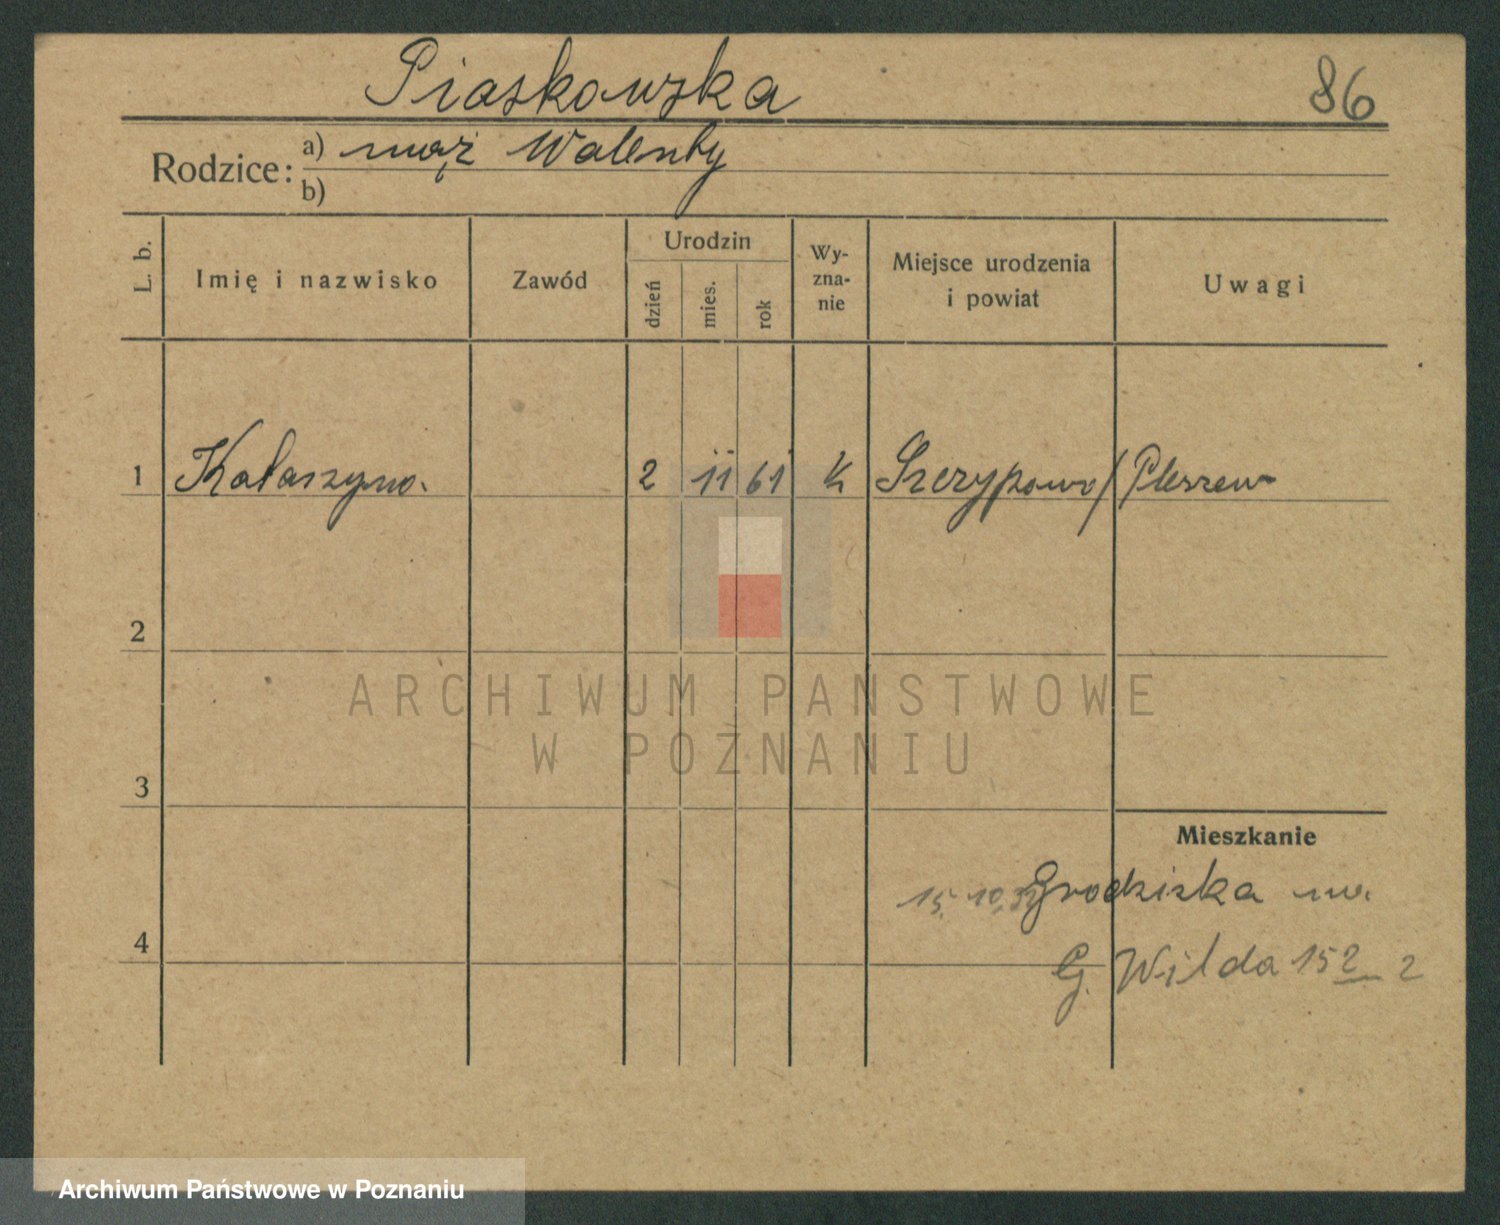 Piaskowska
86
Rodzice: a) mąż Walenty
b)
L. b. Imię i nazwisko Zawód Urodzin dzień mies. rok Wy-zna-nie Miejsce urodzenia i powiat Uwagi
1 Katarzyna. 2 11 61 k Szczypowo / Pleszew
2
ARCHIWUM PAŃSTWOWE
W POZNANIU
3
Mieszkanie
15. 10. Grodziska
4
G. Wilda 152 2
Archiwum Państwowe w Poznaniu